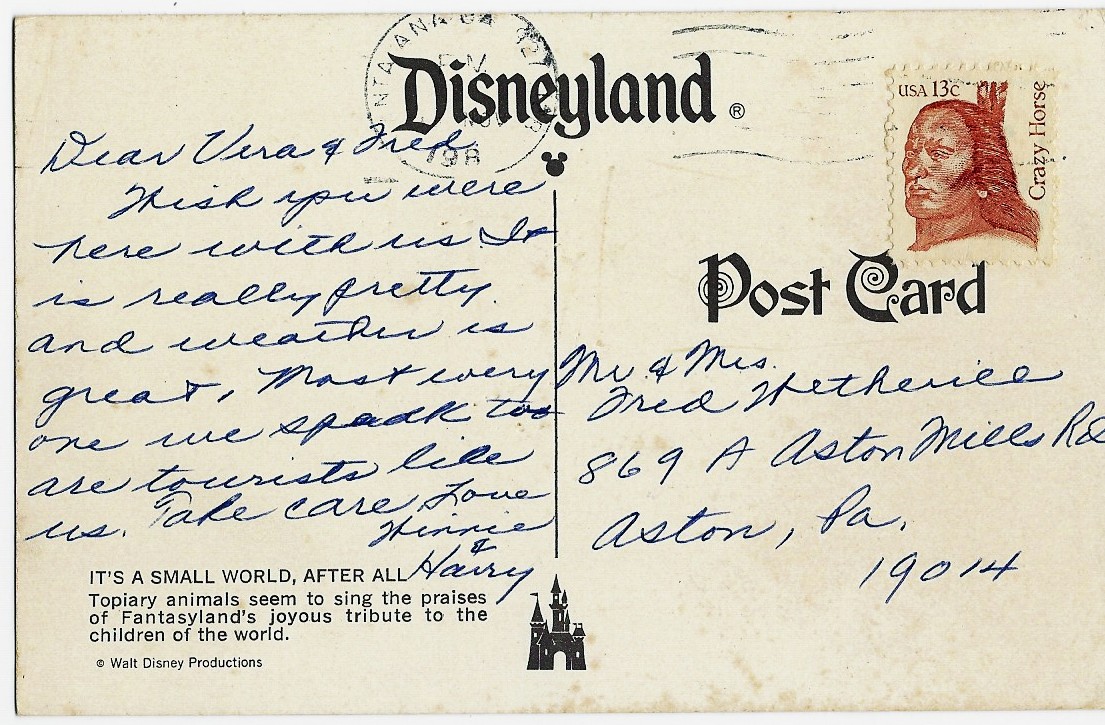 Disneyland ®
198
USA 13c
Crazy Horse
Post Card
Dear Vera & Fred
Wish you were
here with us It
is really pretty
and weather is
great, Most every
one we speak too
are tourists like
us. Take care Love
Winnie
&
Harry
Mr. & Mrs.
Fred Wetherill
869 A Aston Mills Rd
Aston, Pa.
19014
IT'S A SMALL WORLD, AFTER ALL
Topiary animals seem to sing the praises
of Fantasyland's joyous tribute to the
children of the world.
© Walt Disney Productions